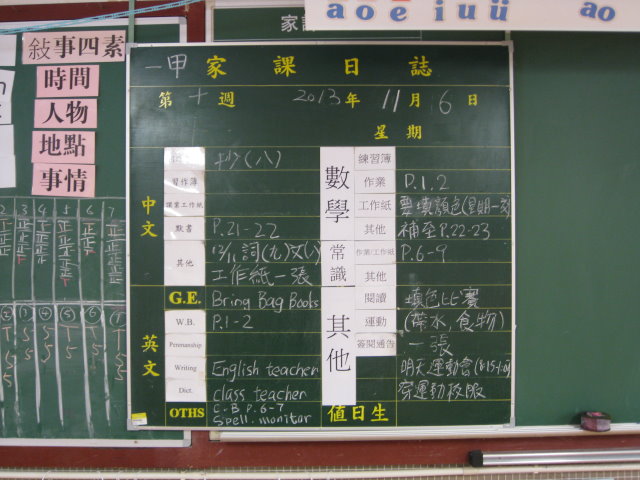 家課
a o e i u ü
ao
敍事四素
時間
人物
地點
事情
一甲 家課日誌
第十週 2013年 11月 6日
星期
中文
抄(八)
習作簿
課業工作紙
默書 P.21-22
其他 詞(九)
工作紙一張
英文
G.E. Bring Bag Books
W.B. P.1-2
Penmanship
Writing English teacher
Dict. class teacher
OTHS C.B P.6-7
Spell. monitor
數學
練習簿
作業 P.1.2
工作紙 要填顏色
其他 補至P.22-23
常識
作業/工作紙 P.6-9
其他
其他
閱讀 填色比賽
運動 (帶水,食物)
簽閱通告 一張
明天運動會
穿運動校服
值日生